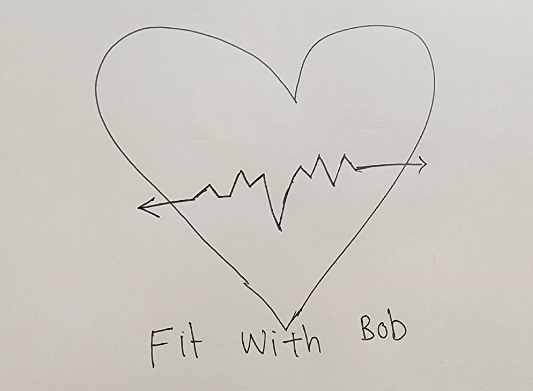 Fit With Bob